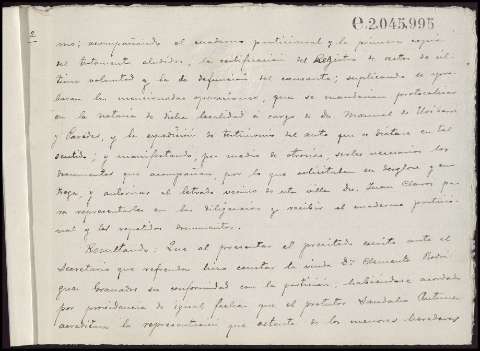 O.2.045.995
2
mo; acompañando el cuaderno particional y la primera copia
del testamento aludidos, la certificación del Registro de actos de úl-
tima voluntad y la de defunción del causante; suplicando se apro-
baran las mencionadas operaciones, que se mandarían protocolizar
en la notaria de dicha localidad á cargo de Dn Manuel de
y Paredes, y la expedición de testimonio del auto que se dictara en tal
sentido; y manifestando, por medio de otrosíes, serles necesarios los
documentos que acompañan, por lo que solicitaban su desglose y en-
trega, y autorizar al letrado vecino de esta villa Dn. Juan Claros pa-
ra representarles en las diligencias y recibir el cuaderno particio-
nal y los repetidos documentos.
Resultando: Que al presentar el precitado escrito ante el
Secretario que refrenda hizo constar la viuda Dª Clemente Rodri-
guez Granados su conformidad con la petición, habiéndose acordado
por providencia de igual fecha que el protutor Antunez
acreditara la representación que ostenta de los menores herederos